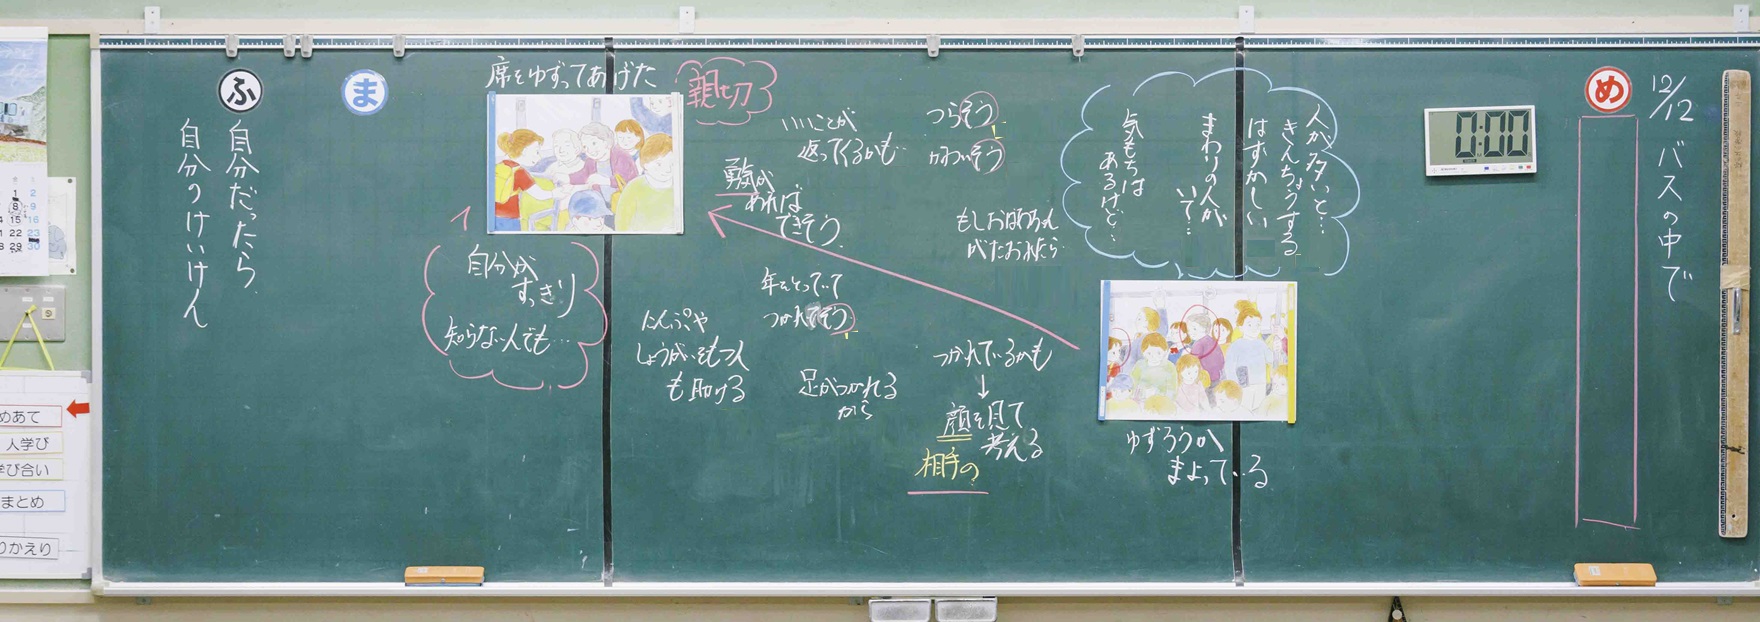 12/12 バスの中で
め
0:00
人が多いと…
きんちょうする
はずかしい
まわりの人が
いて…
気もちは
あるけど…
ゆずろうか
まよっている
つらそう
かわいそう
もしおばあちゃん
がたおれたら
つかれているかも
↓
顔を見て
考える
相手の
いいことが
返ってくるかも…
勇気が
あれば
できそう
年をとっていて
つかれてそう
足がつかれる
から
にんぷや
しょうがいをもつ人
も助ける
親切
席をゆずってあげた
自分が
すっきり
知らない人でも…
ま
ふ
自分だったら
自分のけいけん
1 2
8 9
15 16
22 23
29 30
めあて
人学び
学び合い
まとめ
りかえり